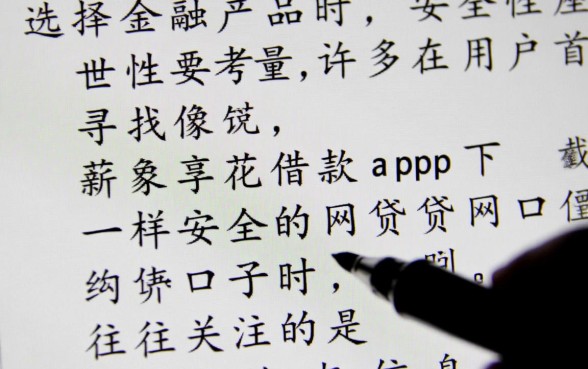 选择金融产品时,安全性是
世性要考量,许多在用户首
寻找像
薪象享花借款appp下 截
一样安全的网贷贷网口
约 口子时, 。
往往关注的是
信息